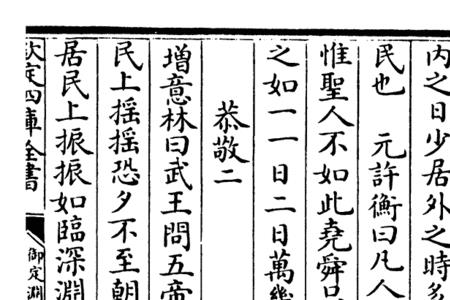 內之日少居外之時多
民也 元許衡曰凡人
惟聖人不如此堯舜
之如一一日二日萬幾
恭敬二
增意林曰武王問五帝
民上摇摇恐夕不至朝
居民上振振如臨深淵
欽定四庫全書
御定淵